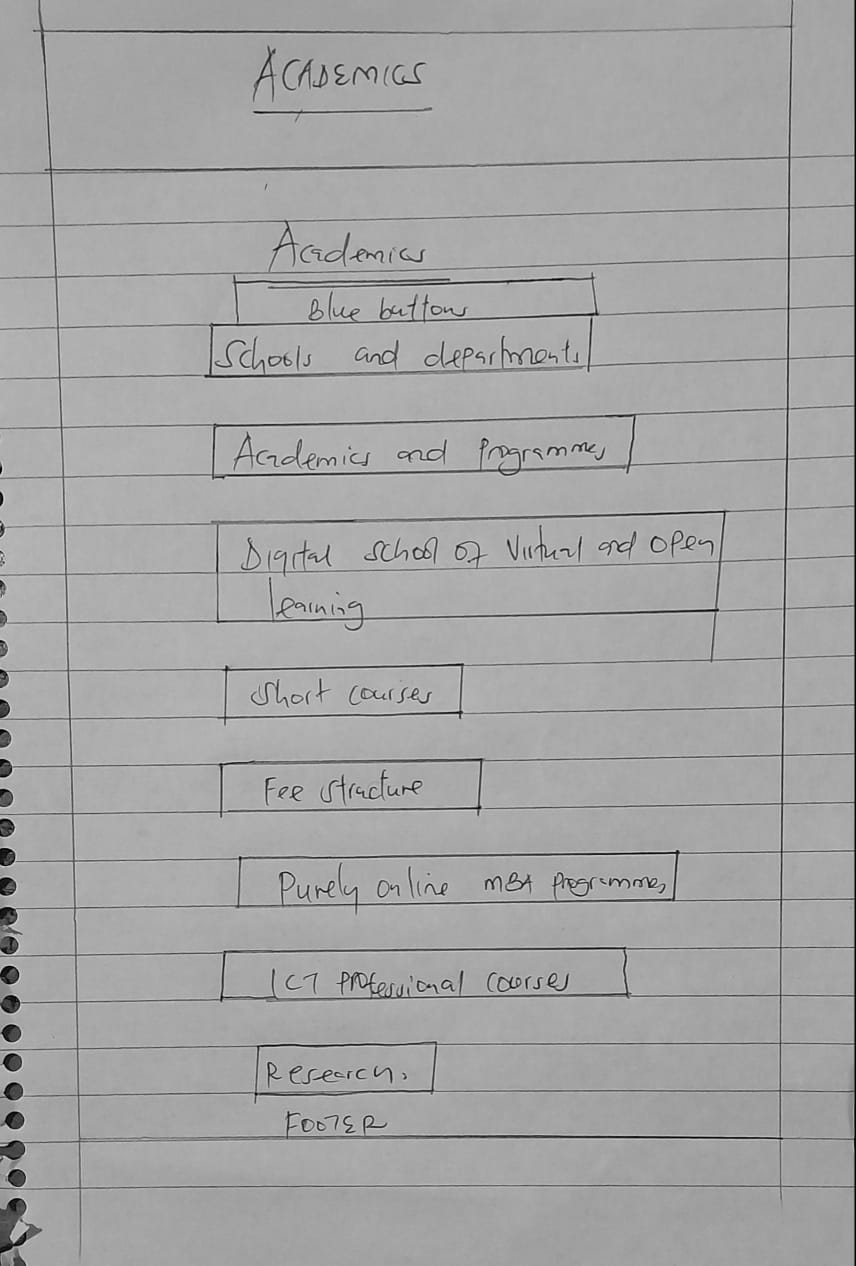 ACADEMICS
Academics
Blue buttons
Schools and departments
Academics and Programmes
Digital School of Virtual and open
learning
Short courses
Fee structure
Purely online MBA Programmes
ICT Professional courses
Research.
FOOTER